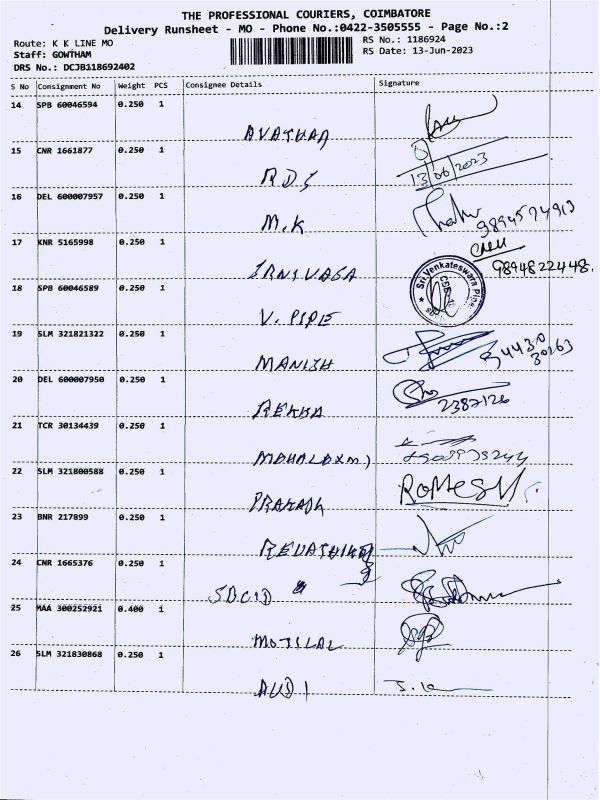 THE PROFESSIONAL COURIERS, COIMBATORE
Delivery Runsheet - MO - Phone No.:0422-3505555 - Page No.:2
Route: K K LINE MO
RS No.: 1186924
Staff: GOWTHAM
RS Date: 13-Jun-2023
DRS No.: DCJB118692402
S No Consignment No Weight PCS Consignee Details Signature
14 SPB 60046594 0.250 1
AVATHAR
15 CNR 1661877 0.250 1
R.D.S
13/06/2023
16 DEL 600007957 0.250 1
M.K
9894574919
17 KNR 5165998 0.250 1
SRNIVASA
9894822448.
Sri Venkateswara Pipe
18 SPB 60046589 0.250 1
V. PIPE
19 SLM 321821322 0.250 1
MANISH
20 DEL 600007950 0.250 1
REKHA
2387126
21 TCR 30134439 0.250 1
MAHALAXMI
22 SLM 321800588 0.250 1
PRAKASH
ROMESH
23 BNR 217899 0.250 1
24 CNR 1665376 0.250 1
25 MAA 300252921 0.400 1
MOTILAL
26 SLM 321830868 0.250 1
AUDI